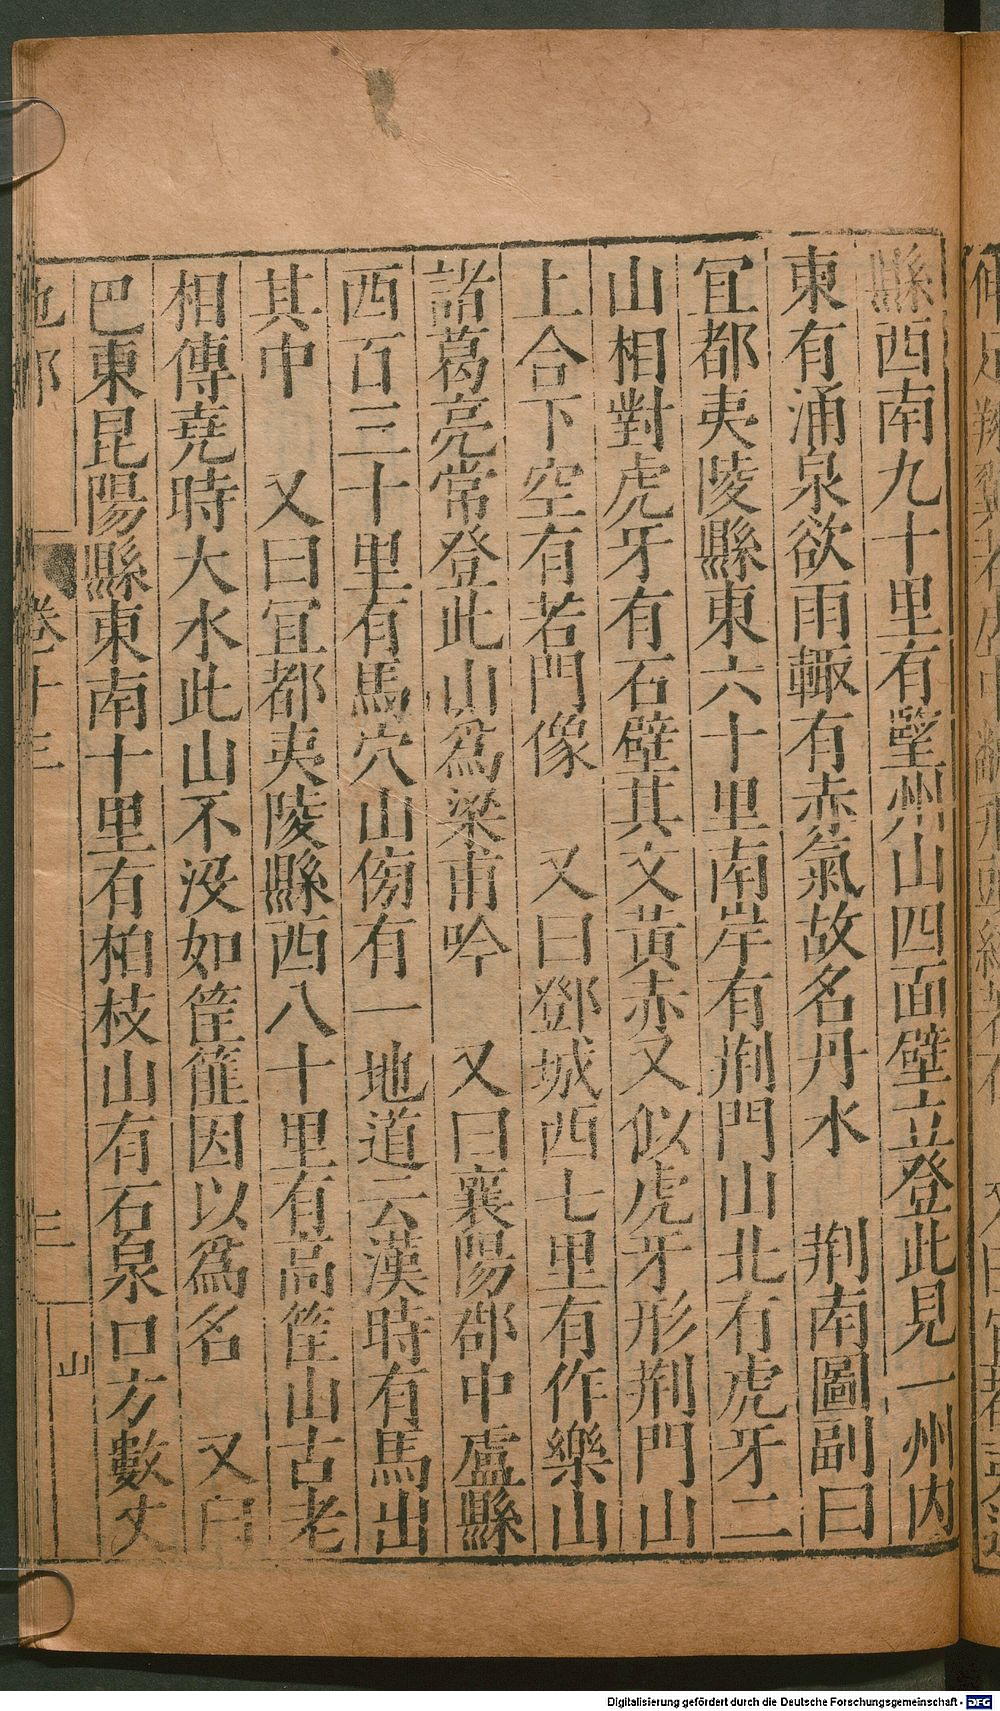 縣西南九十里有㙺州山四面壁立登此見一州内
東有涌泉欲雨輙有赤氣故名丹水　荆南圖副曰
冝都夷陵縣東六十里南岸有荆門山北有虎牙二
山相對虎牙有石壁其文黄赤又似虎牙形荆門山
上合下空有若門像　又曰鄧城西七里有作樂山
諸葛亮常登此山爲梁甫吟　又曰襄陽郡中盧縣
西百三十里有馬穴山傍有一地道云漢時有馬出
其中　又曰冝都夷陵縣西八十里有高筐山古老
相傳堯時大水此山不没如筐篚因以爲名　又曰
巴東昆陽縣東南十里有柏枝山有石泉口方數丈
地部　卷十三　三　山
Digitalisierung gefördert durch die Deutsche Forschungsgemeinschaft - DFG